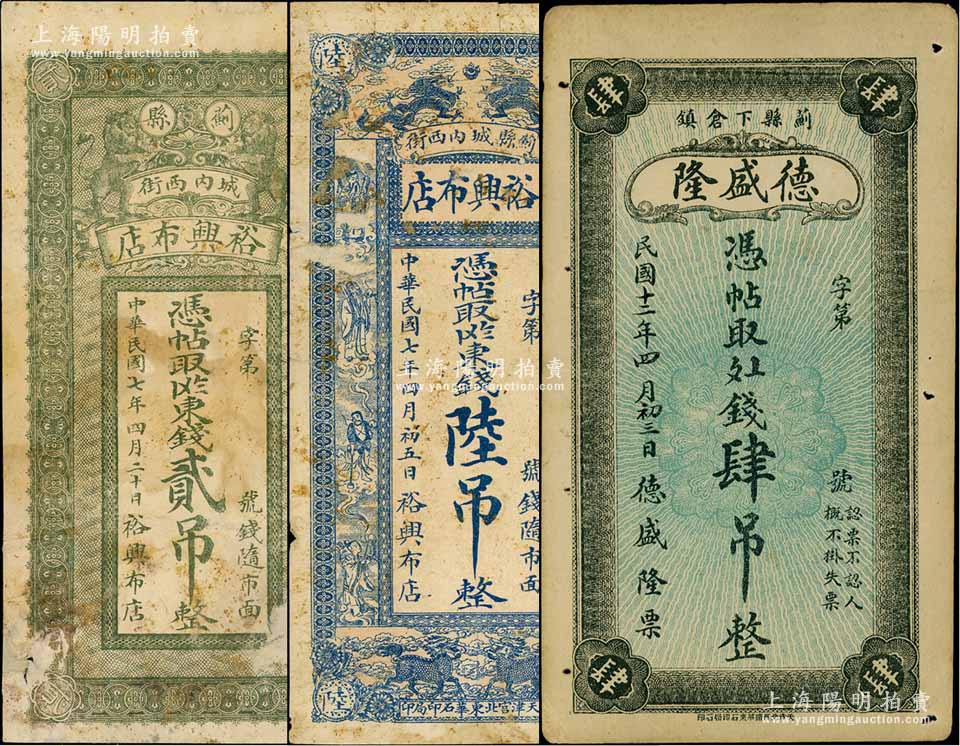 上海陽明拍賣
www.yangmingauction.com
薊縣
城內西街
裕興布店
字第
號錢隨市面
憑帖取東錢貳吊整
中華民國七年四月二十日裕興布店
陸
薊縣城內西街
裕興布店
字第
號錢隨市面
憑帖取東錢陸吊整
中華民國七年四月初五日裕興布店
陸
天津官北東華石印局印
上海陽明拍賣
www.yangmingauction.com
肆
肆
薊縣下倉鎮
德盛隆
字第
號
認票不認人
概不掛失票
憑帖取錢肆吊整
民國十二年四月初三日德盛隆票
肆
肆
上海陽明拍賣
www.yangmingauction.com